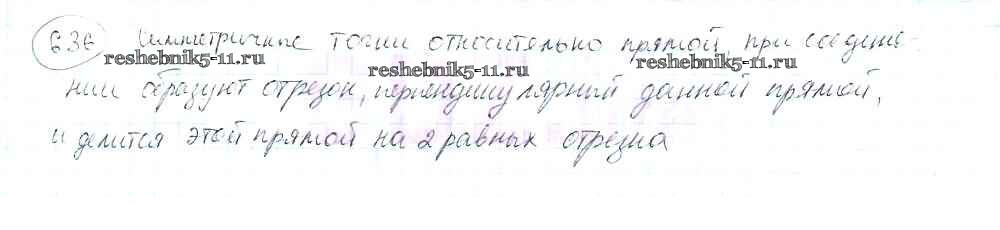 636 Симметричные точки относительно прямой, при соедине-
reshebnik5-11.ru
reshebnik5-11.ru reshebnik5-11.ru
нии образуют отрезок, перпендикулярный данной прямой,
и делится этой прямой на 2 равных отрезка